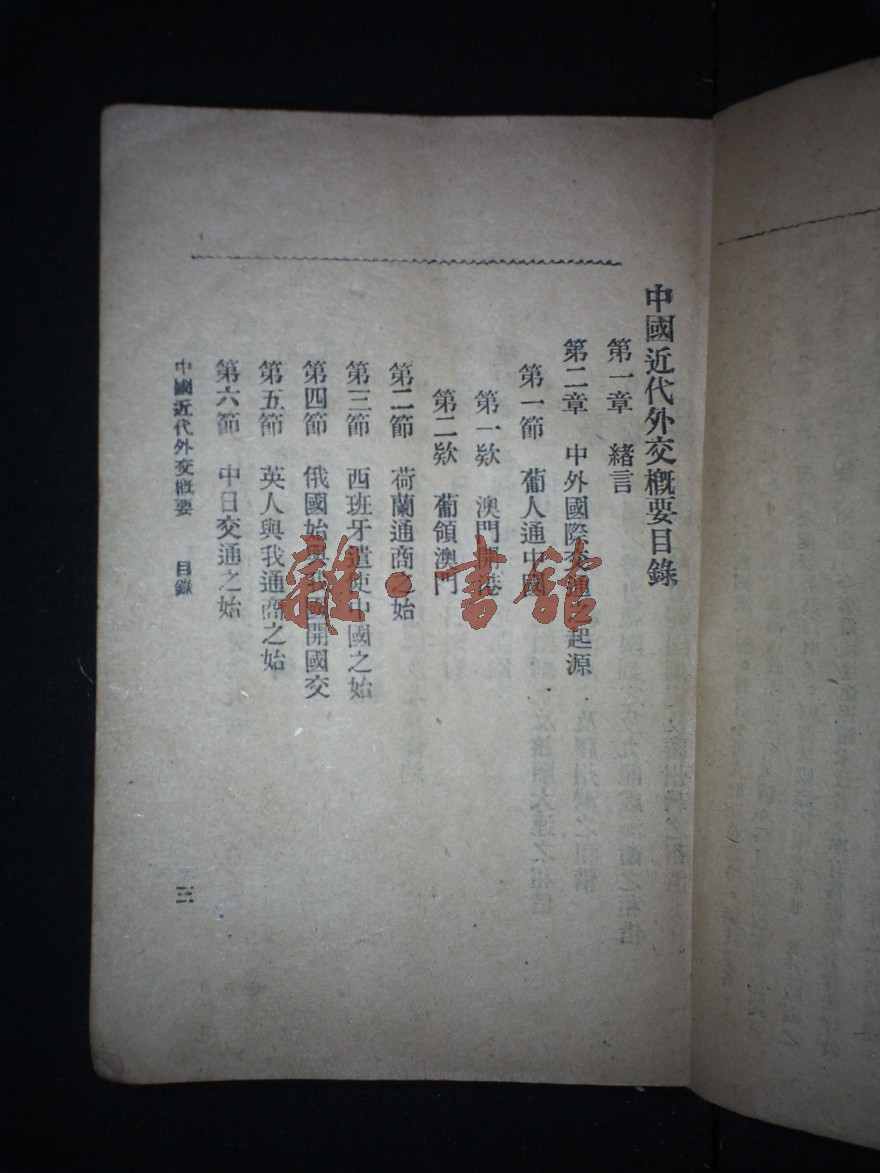 中國近代外交概要目錄
第一章　緒言
第二章　中外國際交通之起源
第一節　葡人通中國
第一欵　澳門開港
第二欵　葡領澳門
第二節　荷蘭通商之始
第三節　西班牙遣使中國之始
第四節　俄國始與我國開國交
第五節　英人與我通商之始
第六節　中日交通之始
中國近代外交概要　目錄
三
雜·書館